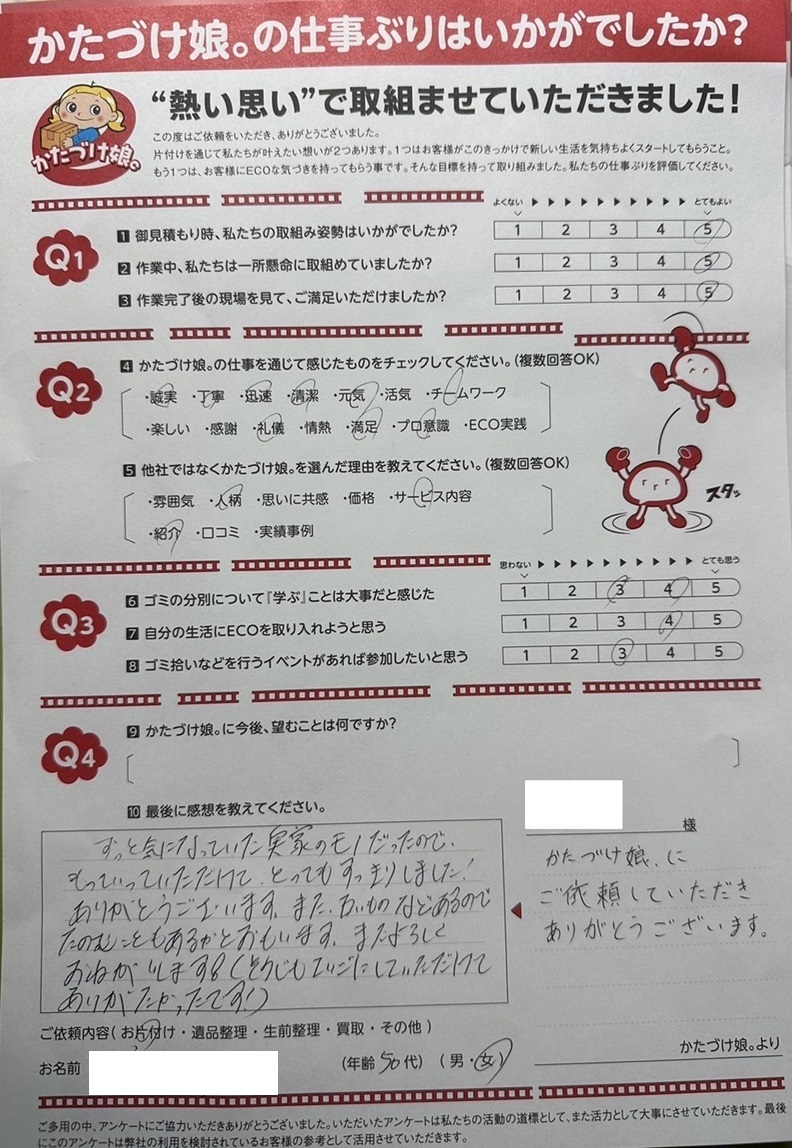 かたづけ娘。の仕事ぶりはいかがでしたか?
かたづけ娘。
“熱い思い”で取組ませていただきました!
この度はご依頼をいただき、ありがとうございました。
片付けを通じて私たちが叶えたい想いが2つあります。1つはお客様がこのきっかけで新しい生活を気持ちよくスタートしてもらうこと。
もう1つは、お客様にECOな気づきを持ってもらう事です。そんな目標を持って取り組みました。私たちの仕事ぶりを評価してください。
よくない とてもよい
Q1
1 御見積もり時、私たちの取組み姿勢はいかがでしたか? 1 2 3 4 5
2 作業中、私たちは一所懸命に取組めていましたか? 1 2 3 4 5
3 作業完了後の現場を見て、ご満足いただけましたか? 1 2 3 4 5
Q2
4 かたづけ娘。の仕事を通じて感じたものをチェックしてください。(複数回答OK)
・誠実 ・丁寧 ・迅速 ・清潔 ・元気 ・活気 ・チームワーク
・楽しい ・感謝 ・礼儀 ・情熱 ・満足 ・プロ意識 ・ECO実践
5 他社ではなくかたづけ娘。を選んだ理由を教えてください。(複数回答OK)
・雰囲気 ・人柄 ・思いに共感 ・価格 ・サービス内容
・紹介 ・口コミ ・実績事例
スタッ
思わない とても思う
Q3
6 ゴミの分別について『学ぶ』ことは大事だと感じた 1 2 3 4 5
7 自分の生活にECOを取り入れようと思う 1 2 3 4 5
8 ゴミ拾いなどを行うイベントがあれば参加したいと思う 1 2 3 4 5
Q4
9 かたづけ娘。に今後、望むことは何ですか?
10 最後に感想を教えてください。
ずっと気になっていた実家のモノだったので、
もっていっていただけて、とってもすっきりしました!
ありがとうございます。また、おいものなどあるので
たのむこともあるかとおもいます。またよろしく
おねがいします!(そうじもていねいにしていただけて
ありがたかったです!)
様
かたづけ娘。に
ご依頼していただき
ありがとうございます。
かたづけ娘。より
ご依頼内容(お片付け・遺品整理・生前整理・買取・その他)
お名前 (年齢50代) (男・女)
ご多用の中、アンケートにご協力いただきありがとうございました。いただいたアンケートは私たちの活動の道標として、また活力として大事にさせていただきます。最後
にこのアンケートは弊社の利用を検討されているお客様の参考として活用させていただきます。